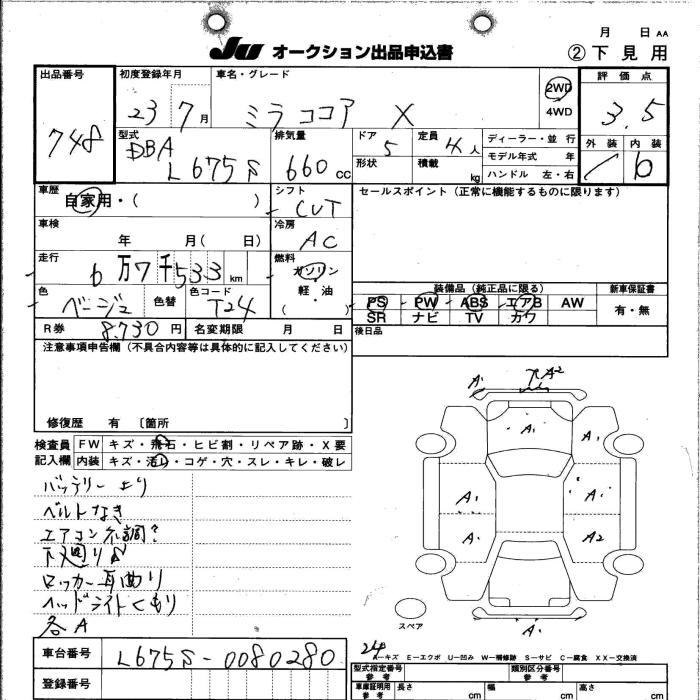 JU オークション出品申込書
月 日 AA
② 下見用
出品番号
748
初度登録年月
23 7月
車名・グレード
ミラココア X
2WD
4WD
評価点
3.5
型式
DBA
L675S
排気量
660 CC
ドア
5
形状
定員
4人
積載
kg
ディーラー・並行
モデル年式 年
ハンドル 左・右
外装
内装
b
車歴
自家用・( )
シフト
CVT
セールスポイント(正常に機能するものに限ります)
車検
年 月( 日)
冷房
AC
走行
6万7千533km
燃料
ガソリン
軽・油
( )
色
ベージュ
色替
色コード
T24
装備品(純正品に限る)
新車保証書
PS PW ABS エアB AW
SR ナビ TV カワ
有・無
R券 8,730円
名変期限 月 日
後日品
注意事項申告欄(不具合内容等は具体的に記入してください)
修復歴 有 〔箇所 〕
検査員 FW キズ・飛石・ヒビ割・リペア跡・X要
記入欄 内装 キズ・汚レ・コゲ・穴・スレ・キレ・破レ
ベルトなき
エアコン不調?
下廻りS
ロッカー耳曲り
ヘッドライトくもり
各A
A1 A2
A1 A1
A1 A1
A1 A2
A1
スペア
車台番号 L675S-0080280
登録番号
24
A-キズ E-エクボ U-凹み W-補修跡 S-サビ C-腐食 XX-交換済
型式指定番号
参考
類別区分番号
参考
車庫証明用
参考
長さ cm
幅 cm
高さ cm